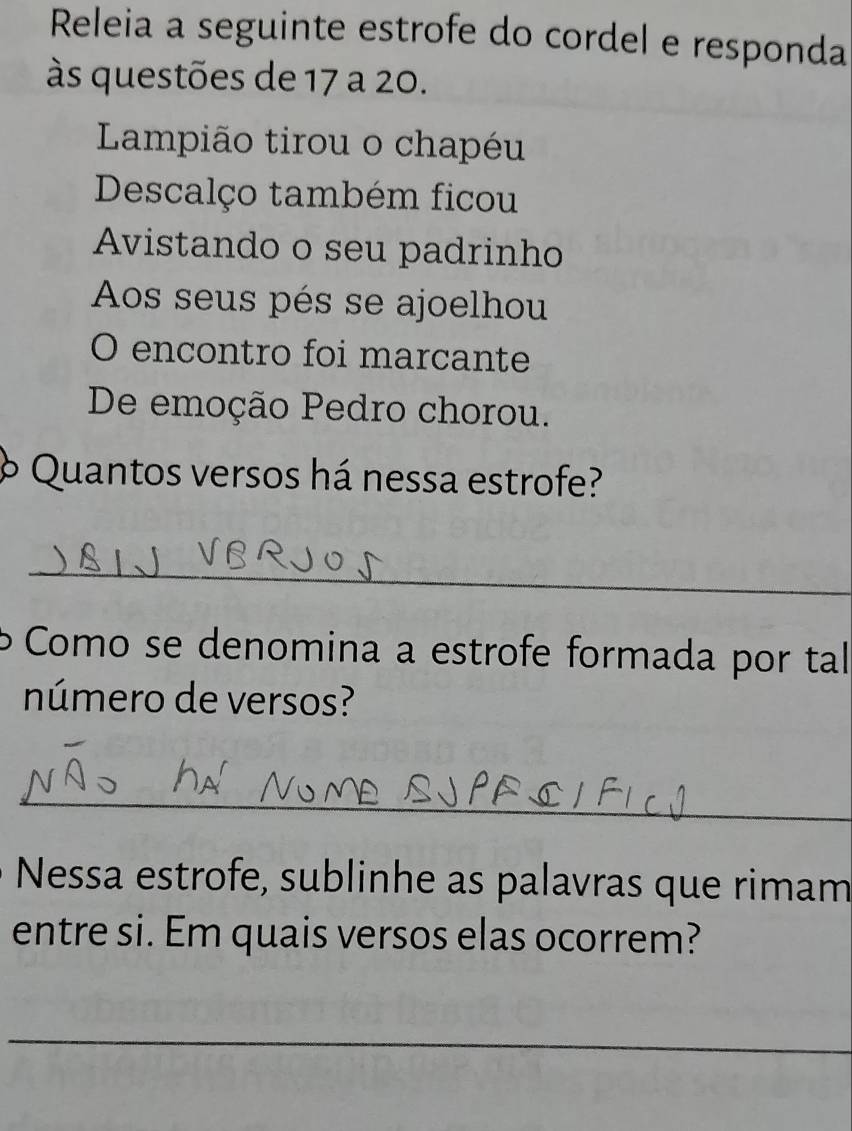 Releia a seguinte estrofe do cordel e responda
às questões de 17 a 20.
Lampião tirou o chapéu
Descalço também ficou
Avistando o seu padrinho
Aos seus pés se ajoelhou
O encontro foi marcante
De emoção Pedro chorou.
Quantos versos há nessa estrofe?
SEIS VERSOS
Como se denomina a estrofe formada por tal
número de versos?
NÃO HÁ NOME ESPECIFICO
Nessa estrofe, sublinhe as palavras que rimam
entre si. Em quais versos elas ocorrem?